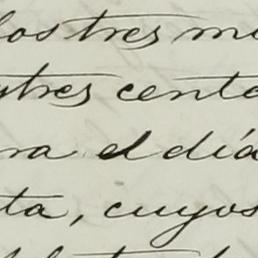 los tres mi
y tres centa
ra el diá
ta, cuyos